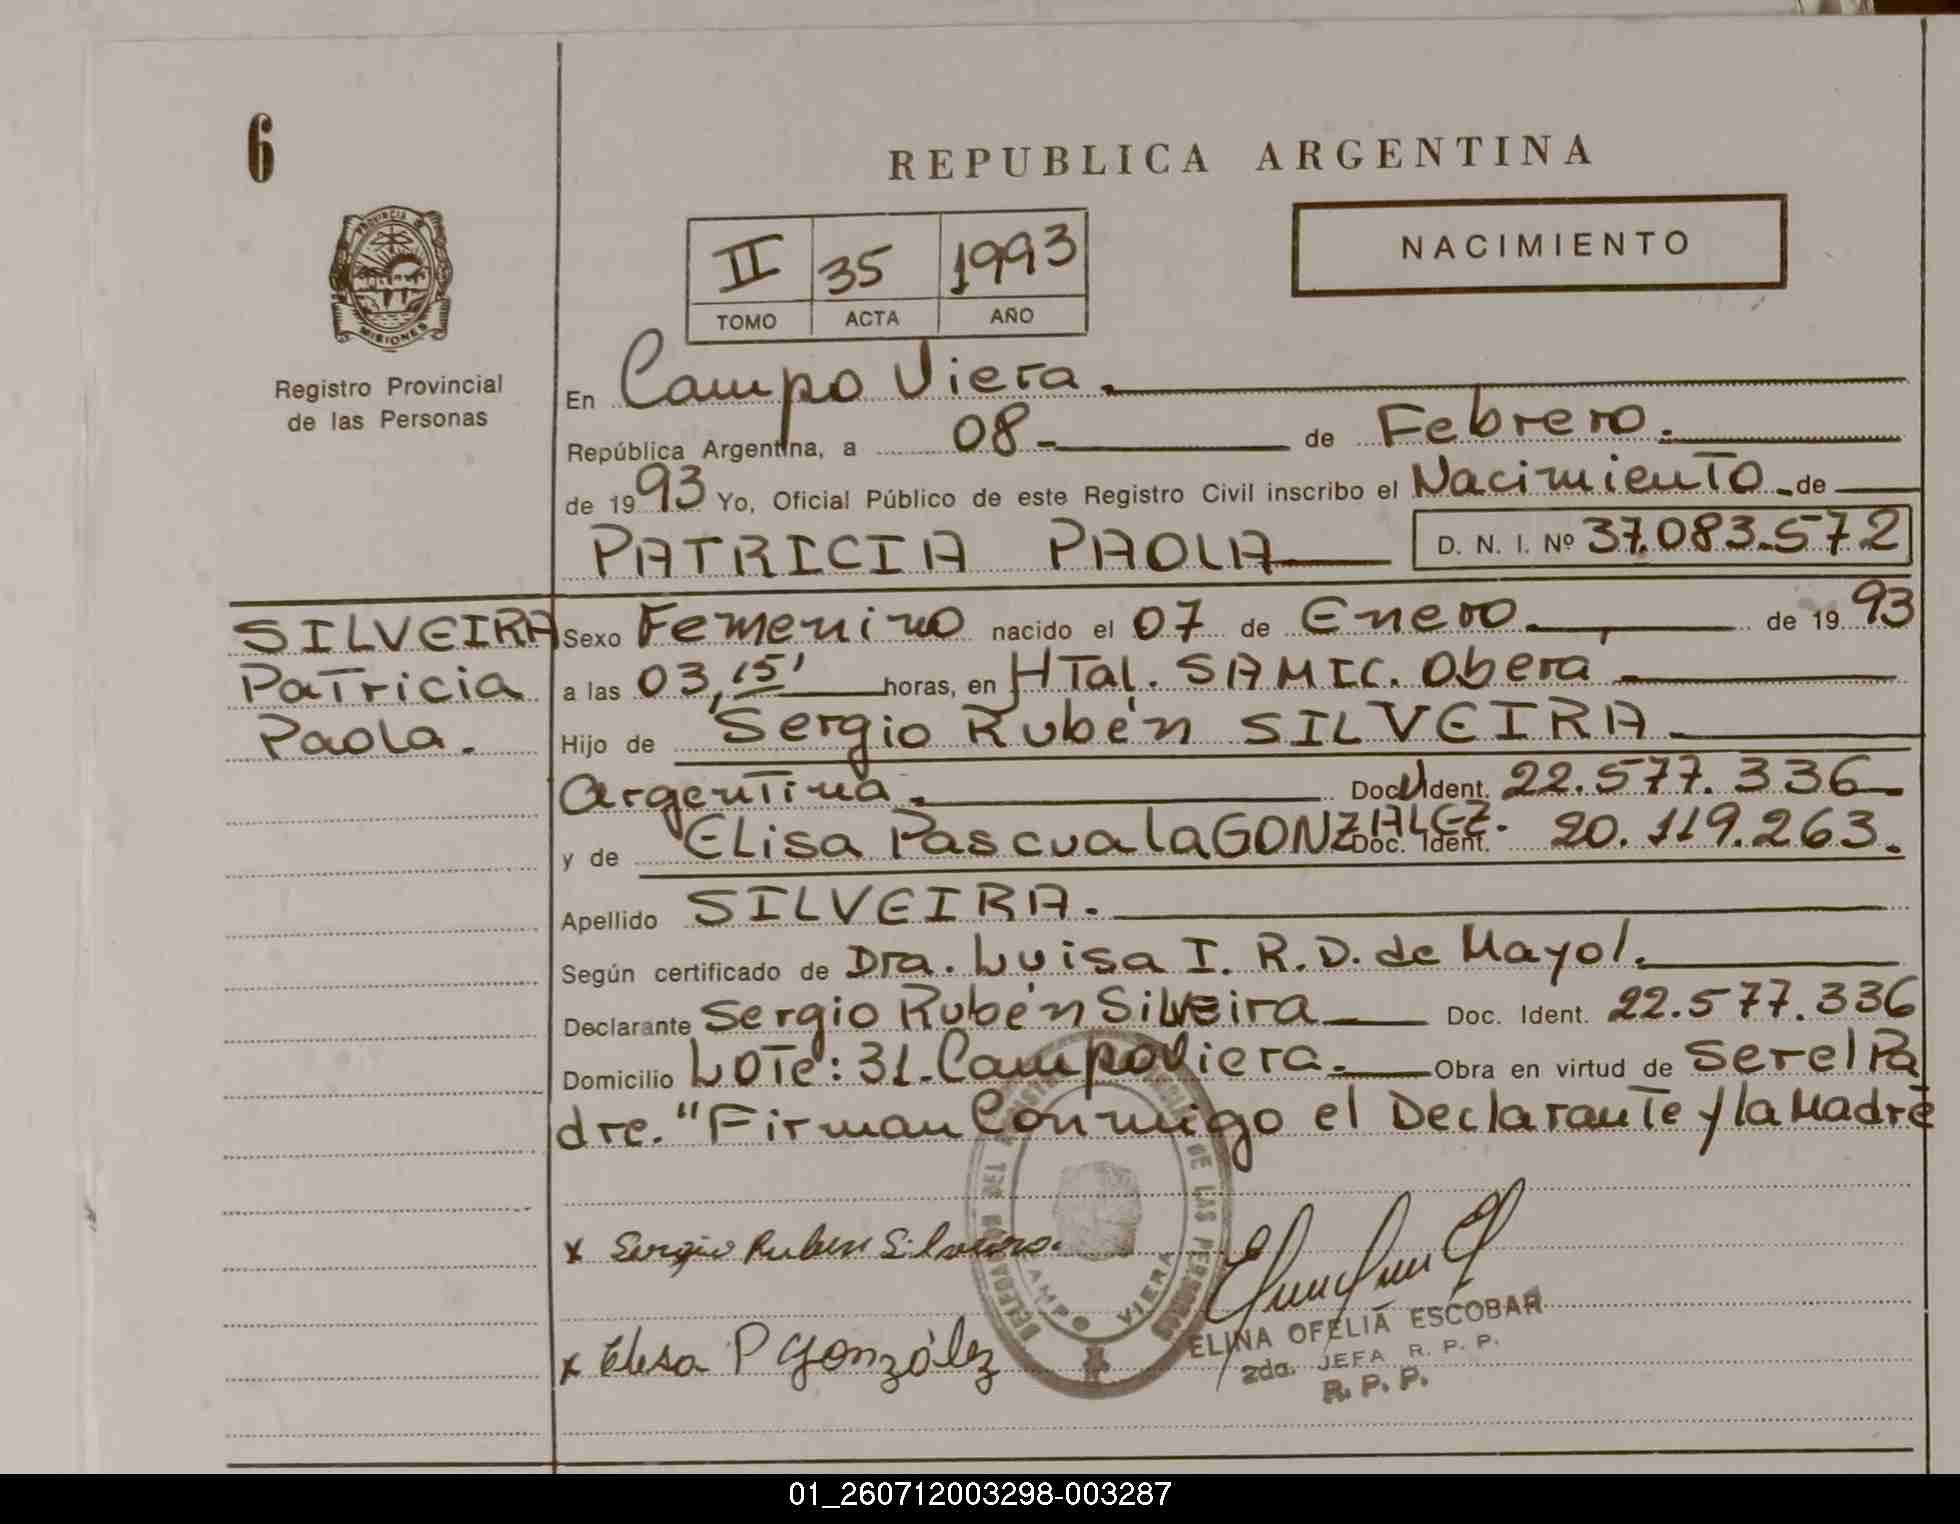 6
REPUBLICA ARGENTINA
NACIMIENTO
II 35 1993
TOMO ACTA AÑO
PROVINCIA DE
MISIONES
Registro Provincial
de las Personas
En Campo Viera.
República Argentina, a 08- de Febrero.
de 1993 Yo, Oficial Público de este Registro Civil inscribo el Nacimiento de
PATRICIA PAOLA D. N. I. Nº 37.083.572
SILVEIRA
Patricia
Paola.
Sexo Femenino nacido el 07 de Enero. de 1993
a las 03,15' horas, en HTal. SAMIC. Obera
Hijo de Sergio Rubén SILVEIRA
Argentina. Doc. Ident. 22.577.336
y de ELisa Pascuala GONZALEZ. Doc. Ident. 20.119.263.
Apellido SILVEIRA.
Según certificado de Dra. Luisa I. R. D. de Mayol.
Declarante Sergio Rubén Silveira Doc. Ident. 22.577.336
Domicilio LOTe: 31. Campo Viera. Obra en virtud de Ser el Pa
dre. "Firman Conmigo el Declarante y la Madre
DE LAS PERSONAS
CAMPO VIERA
x Sergio Ruben Silveira.
x Elisa P González
ELINA OFELIA ESCOBAR
2da. JEFA R. P. P.
R. P. P.
01_260712003298-003287